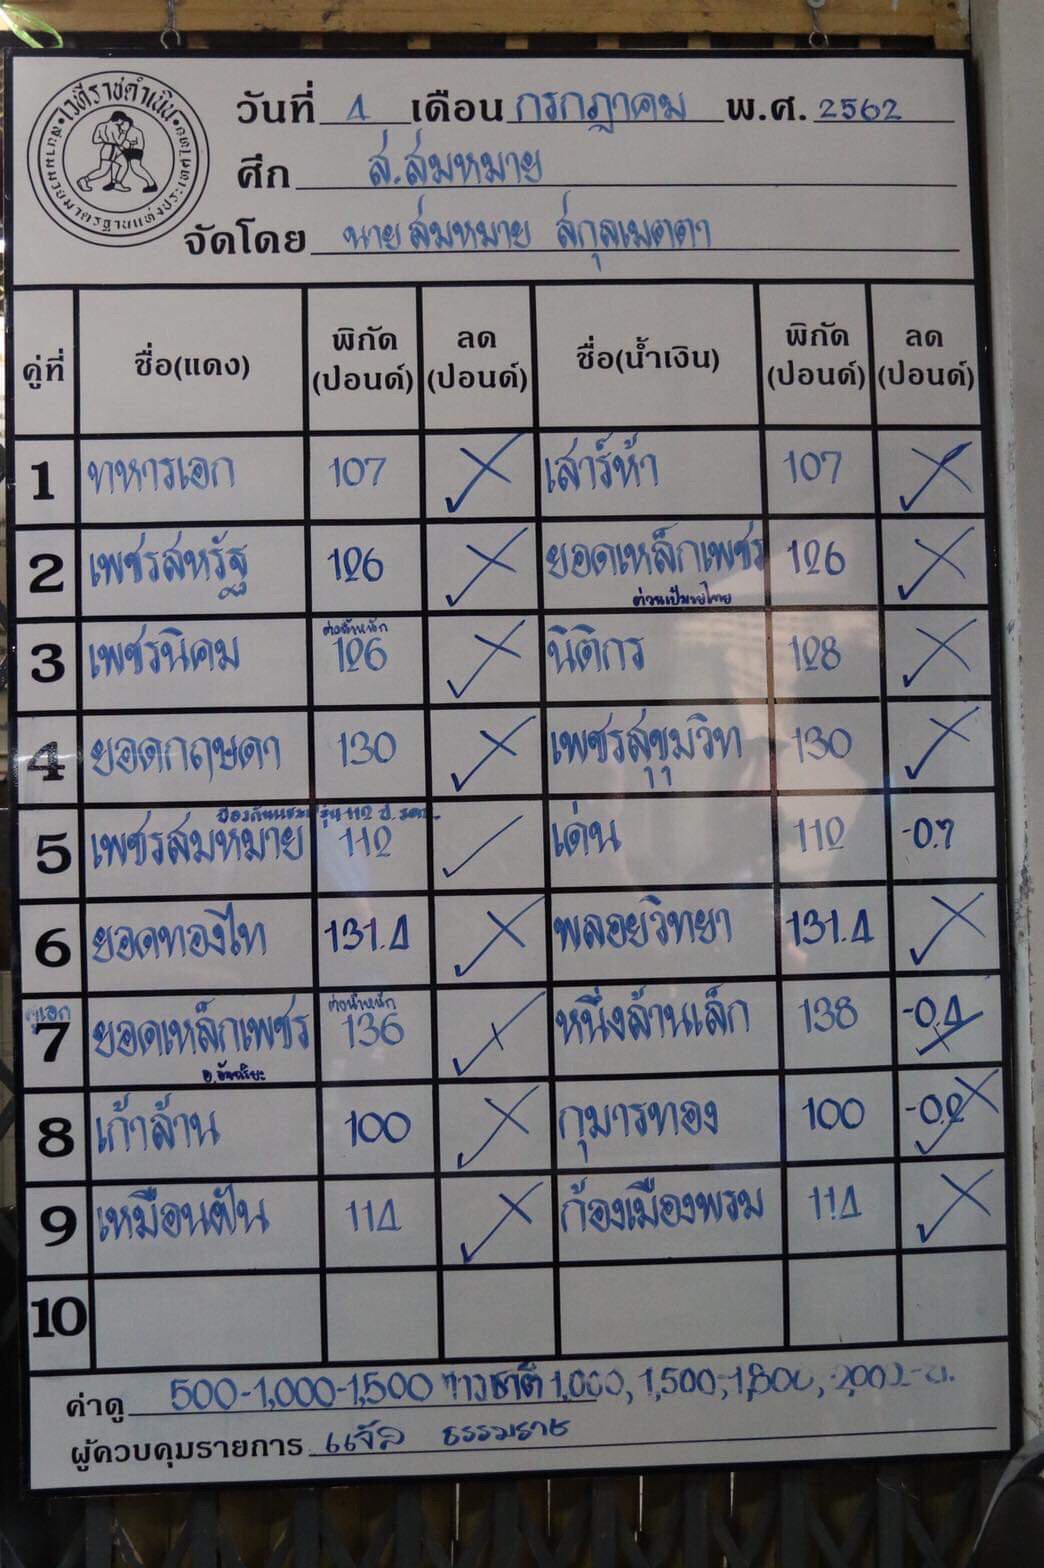 เวทีราชดำเนิน
วันที่ 4 เดือน กรกฎาคม พ.ศ. 2562
ศึก ส.สมหมาย
จัดโดย นายสมหมาย สกุลเมตตา
คู่ที่ ชื่อ(แดง) พิกัด (ปอนด์) ลด (ปอนด์) ชื่อ(น้ำเงิน) พิกัด (ปอนด์) ลด (ปอนด์)
1 ทหารเอก 107 เสาร์ห้า 107
2 เพชรสหรัฐ 126 ยอดเหล็กเพชร 126
3 เพชรนิคม ต่อน้ำหนัก 126 นิติกร 128
4 ยอดกฤษดา 130 เพชรสุขุมวิท 130
ป้องกันแชมป์ รุ่น 112 ป.
5 เพชรสมหมาย 112 เด่น 112 -0.7
6 ยอดทองไท 131.4 พลอยวิทยา 131.4
คู่เอก
7 ยอดเหล็กเพชร ต่อน้ำหนัก 136 หนึ่งล้านเล็ก 138 -0.4
อ.อัจฉริยะ
8 เก้าล้าน 100 กุมารทอง 100 -0.2
9 เหมือนฝัน 114 ก้องเมืองพรม 114
10
ค่าดู 500-1,000-1,500 ชาวต่างชาติ 1,000, 1,500,-1,800,-2,00
ผู้ควบคุมรายการ แจ๊ส ธรรมราช